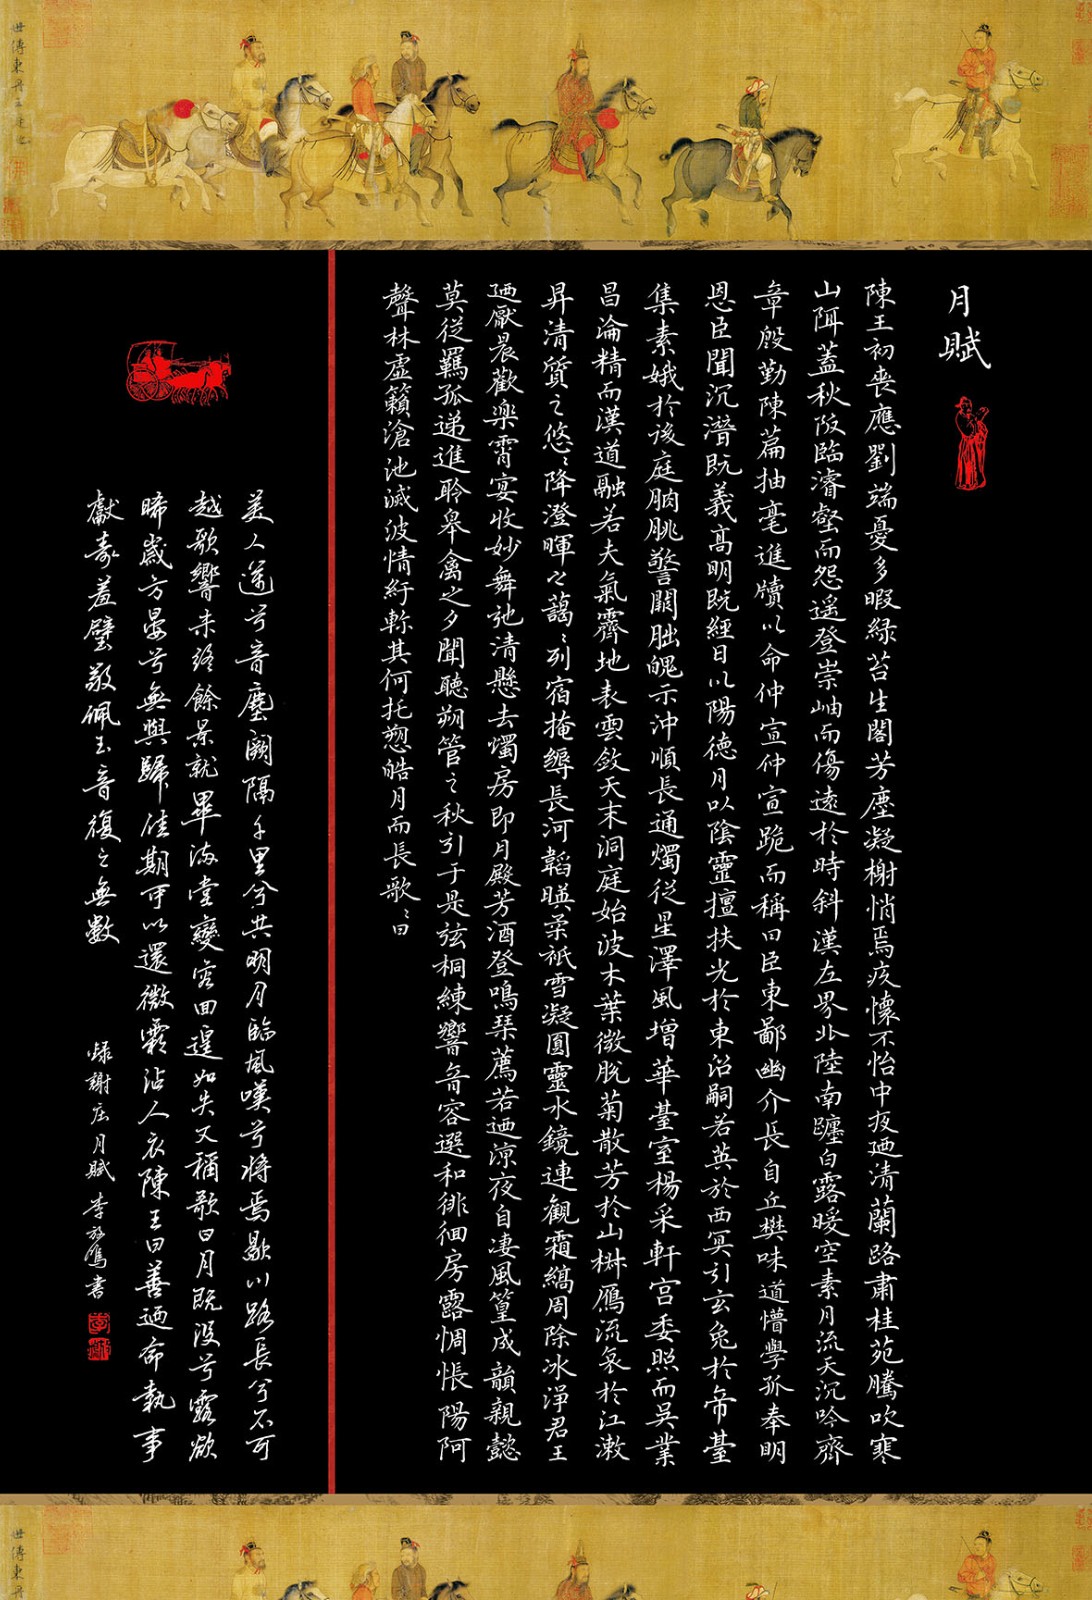 月賦
陳王初喪應劉端憂多暇綠苔生閣芳塵凝榭悄焉疚懷不怡中夜迺清蘭路肅桂苑騰吹寒
山弭蓋秋阪臨濬壑而怨遥登崇岫而傷遠於時斜漢左界北陸南躔白露曖空素月流天沉吟齊
章殷勤陳篇抽毫進牘以命仲宣仲宣跪而稱曰臣東鄙幽介長自丘樊昧道懵學孤奉明
恩臣聞沉潛既義高明既經日以陽德月以陰靈擅扶光於東沼嗣若英於西冥引玄兔於帝臺
集素娥於後庭朒朓警闕朏魄示沖順長通燭從星澤風增華臺室楊采軒宮委照而吳業
昌淪精而漢道融若夫氣霽地表雲斂天末洞庭始波木葉微脫菊散芳於山椒鴈流哀於江瀨
昇清質之悠〻降澄暉之藹〻列宿掩縟長河韜暎柔祇雪凝圓靈水鏡連觀霜縞周除冰淨君王
迺厭晨歡樂宵宴收妙舞弛清懸去燭房即月殿芳酒登鳴琴薦若迺涼夜自淒風篁成韻親懿
莫從羈孤遞進聆皋禽之夕聞聽朔管之秋引于是弦桐練響音容選和徘徊房露惆悵陽阿
聲林虛籟滄池滅波情紆軫其何托愬皓月而長歌〻曰
美人邁兮音塵闕隔千里兮共明月臨風嘆兮將焉歇川路長兮不可
越歌響未終餘景就畢滿堂變容回遑如失又稱歌曰月既没兮露欲
晞歲方晏兮無與歸佳期可以還微霜沾人衣陳王曰善迺命執事
獻壽羞璧敬佩玉音復之無數
錄謝庄月賦 李 書
世傳東丹王是也
世傳東丹